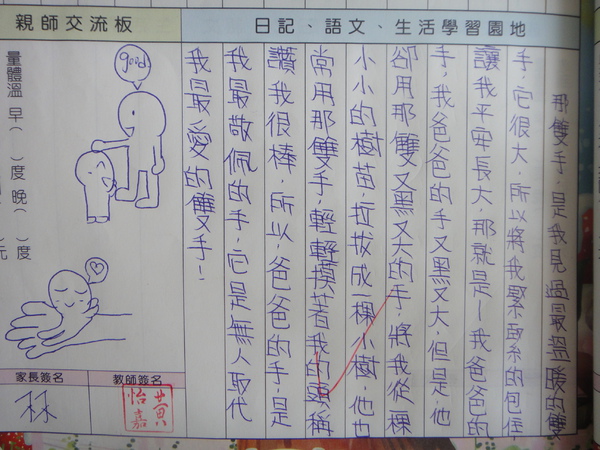 親師交流板
日記、語文、生活學習園地
那雙手,是我見過最溫暖的雙
手,它很大,所以將我緊緊的包住
讓我平安長大,那就是—我爸爸的
手,我爸爸的手又黑又大,但是,他
卻用那雙又黑又大的手,將我從棵
小小的樹苗,拉拔成一棵小樹,他也
常用那雙手,輕輕摸著我的頭稱
讚我很棒,所以,爸爸的手,是
我最敬佩的手,它是無人取代
我最愛的雙手!
good
量體溫 早( )度 晚( )度
元
家長簽名
教師簽名
林
黃怡嘉